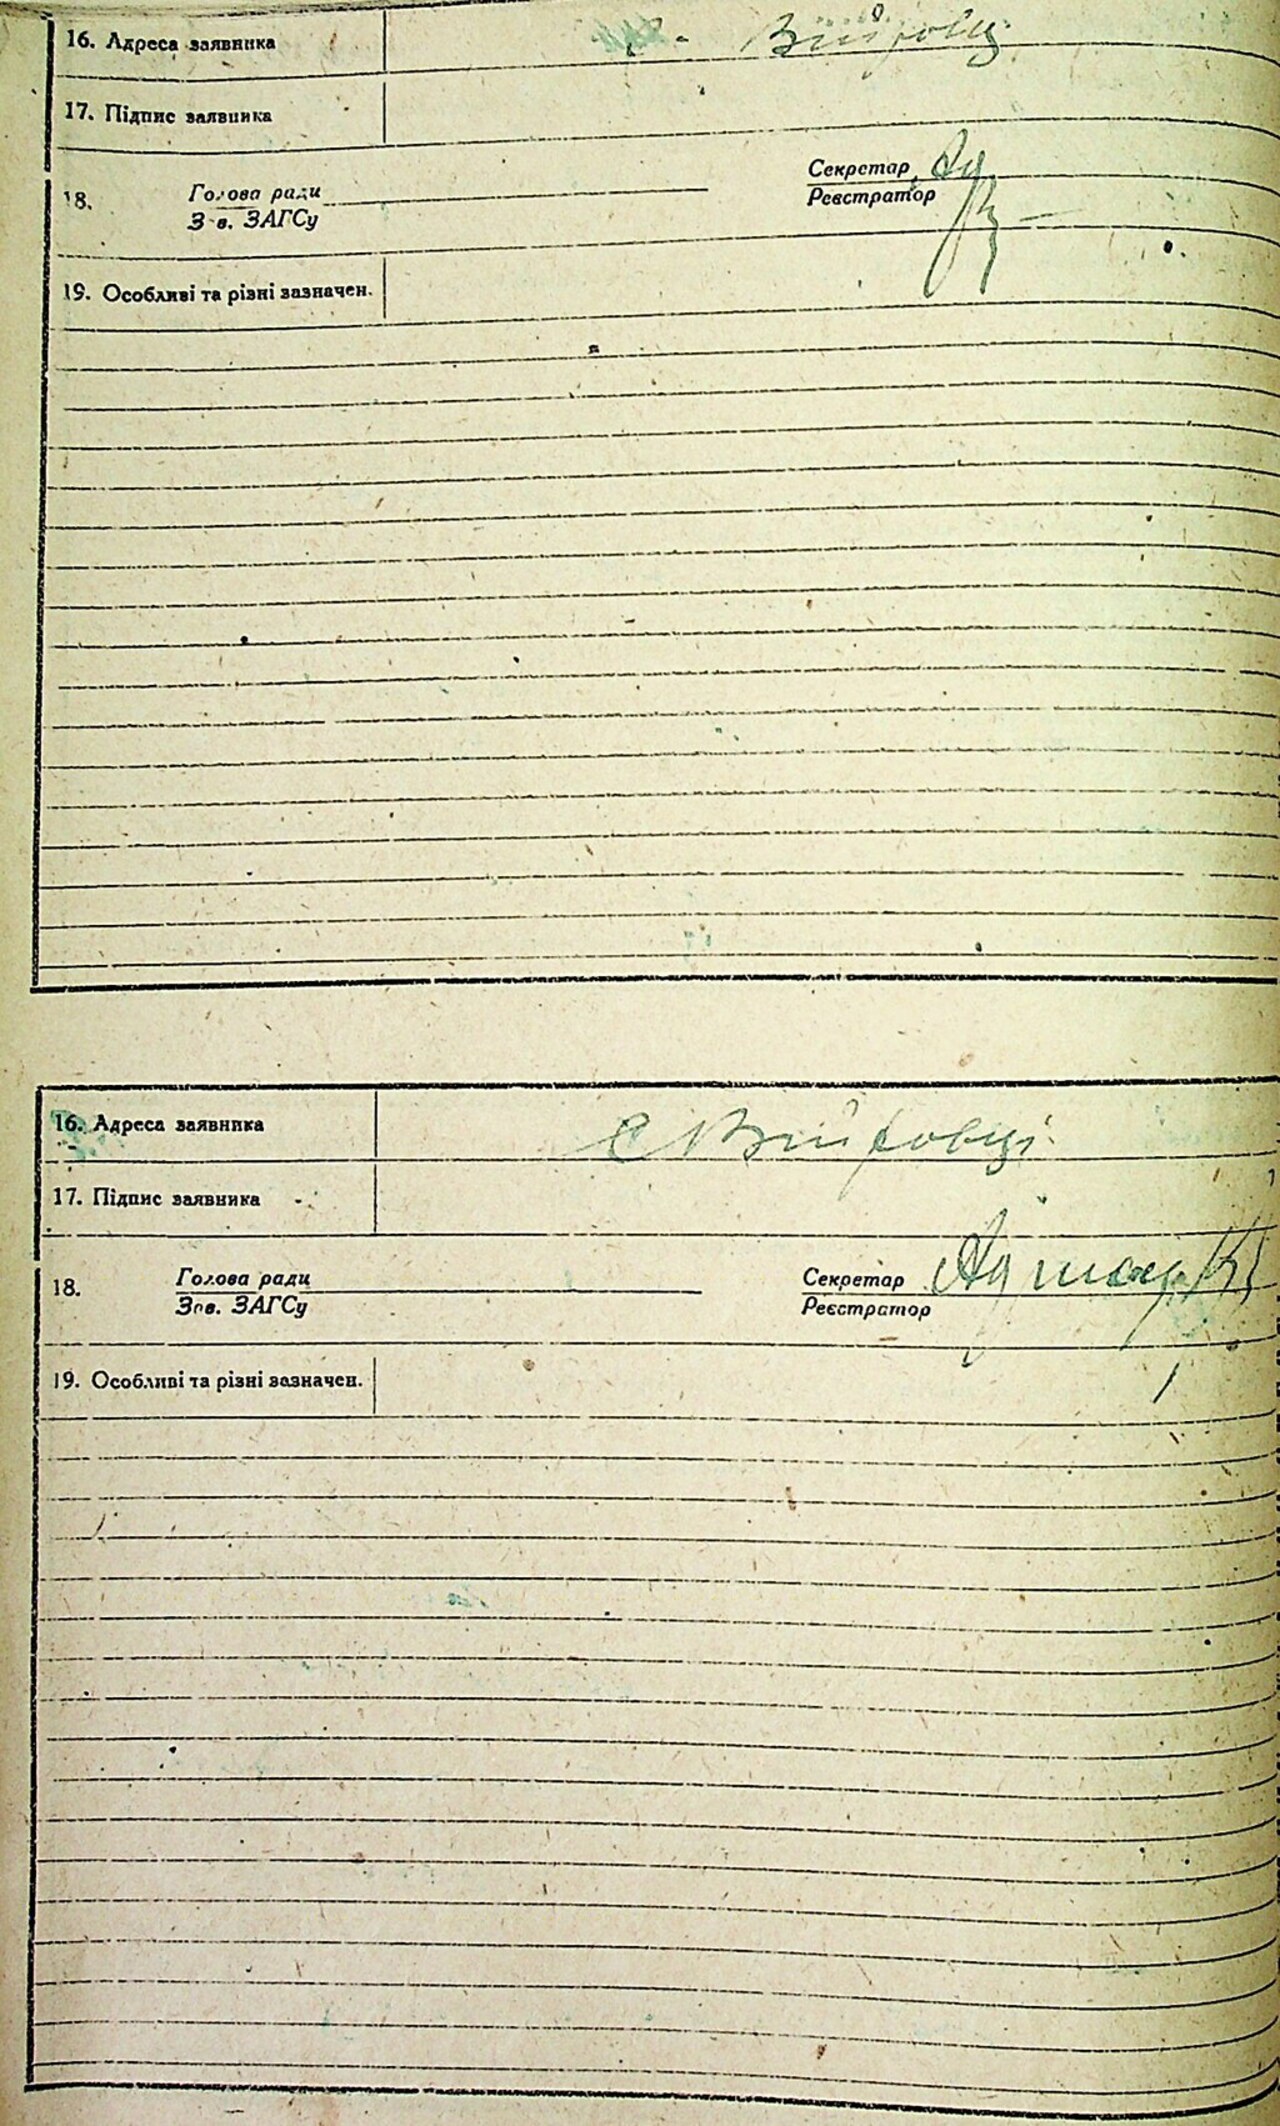 16. Адреса заявника
17. Підпис заявника
18. Голова ради Секретар
Зав. ЗАГСу Реєстратор
19. Особливі та різні зазначен.
16. Адреса заявника с Війтовці
17. Підпис заявника
18. Голова ради Секретар
Зав. ЗАГСу Реєстратор
19. Особливі та різні зазначен.